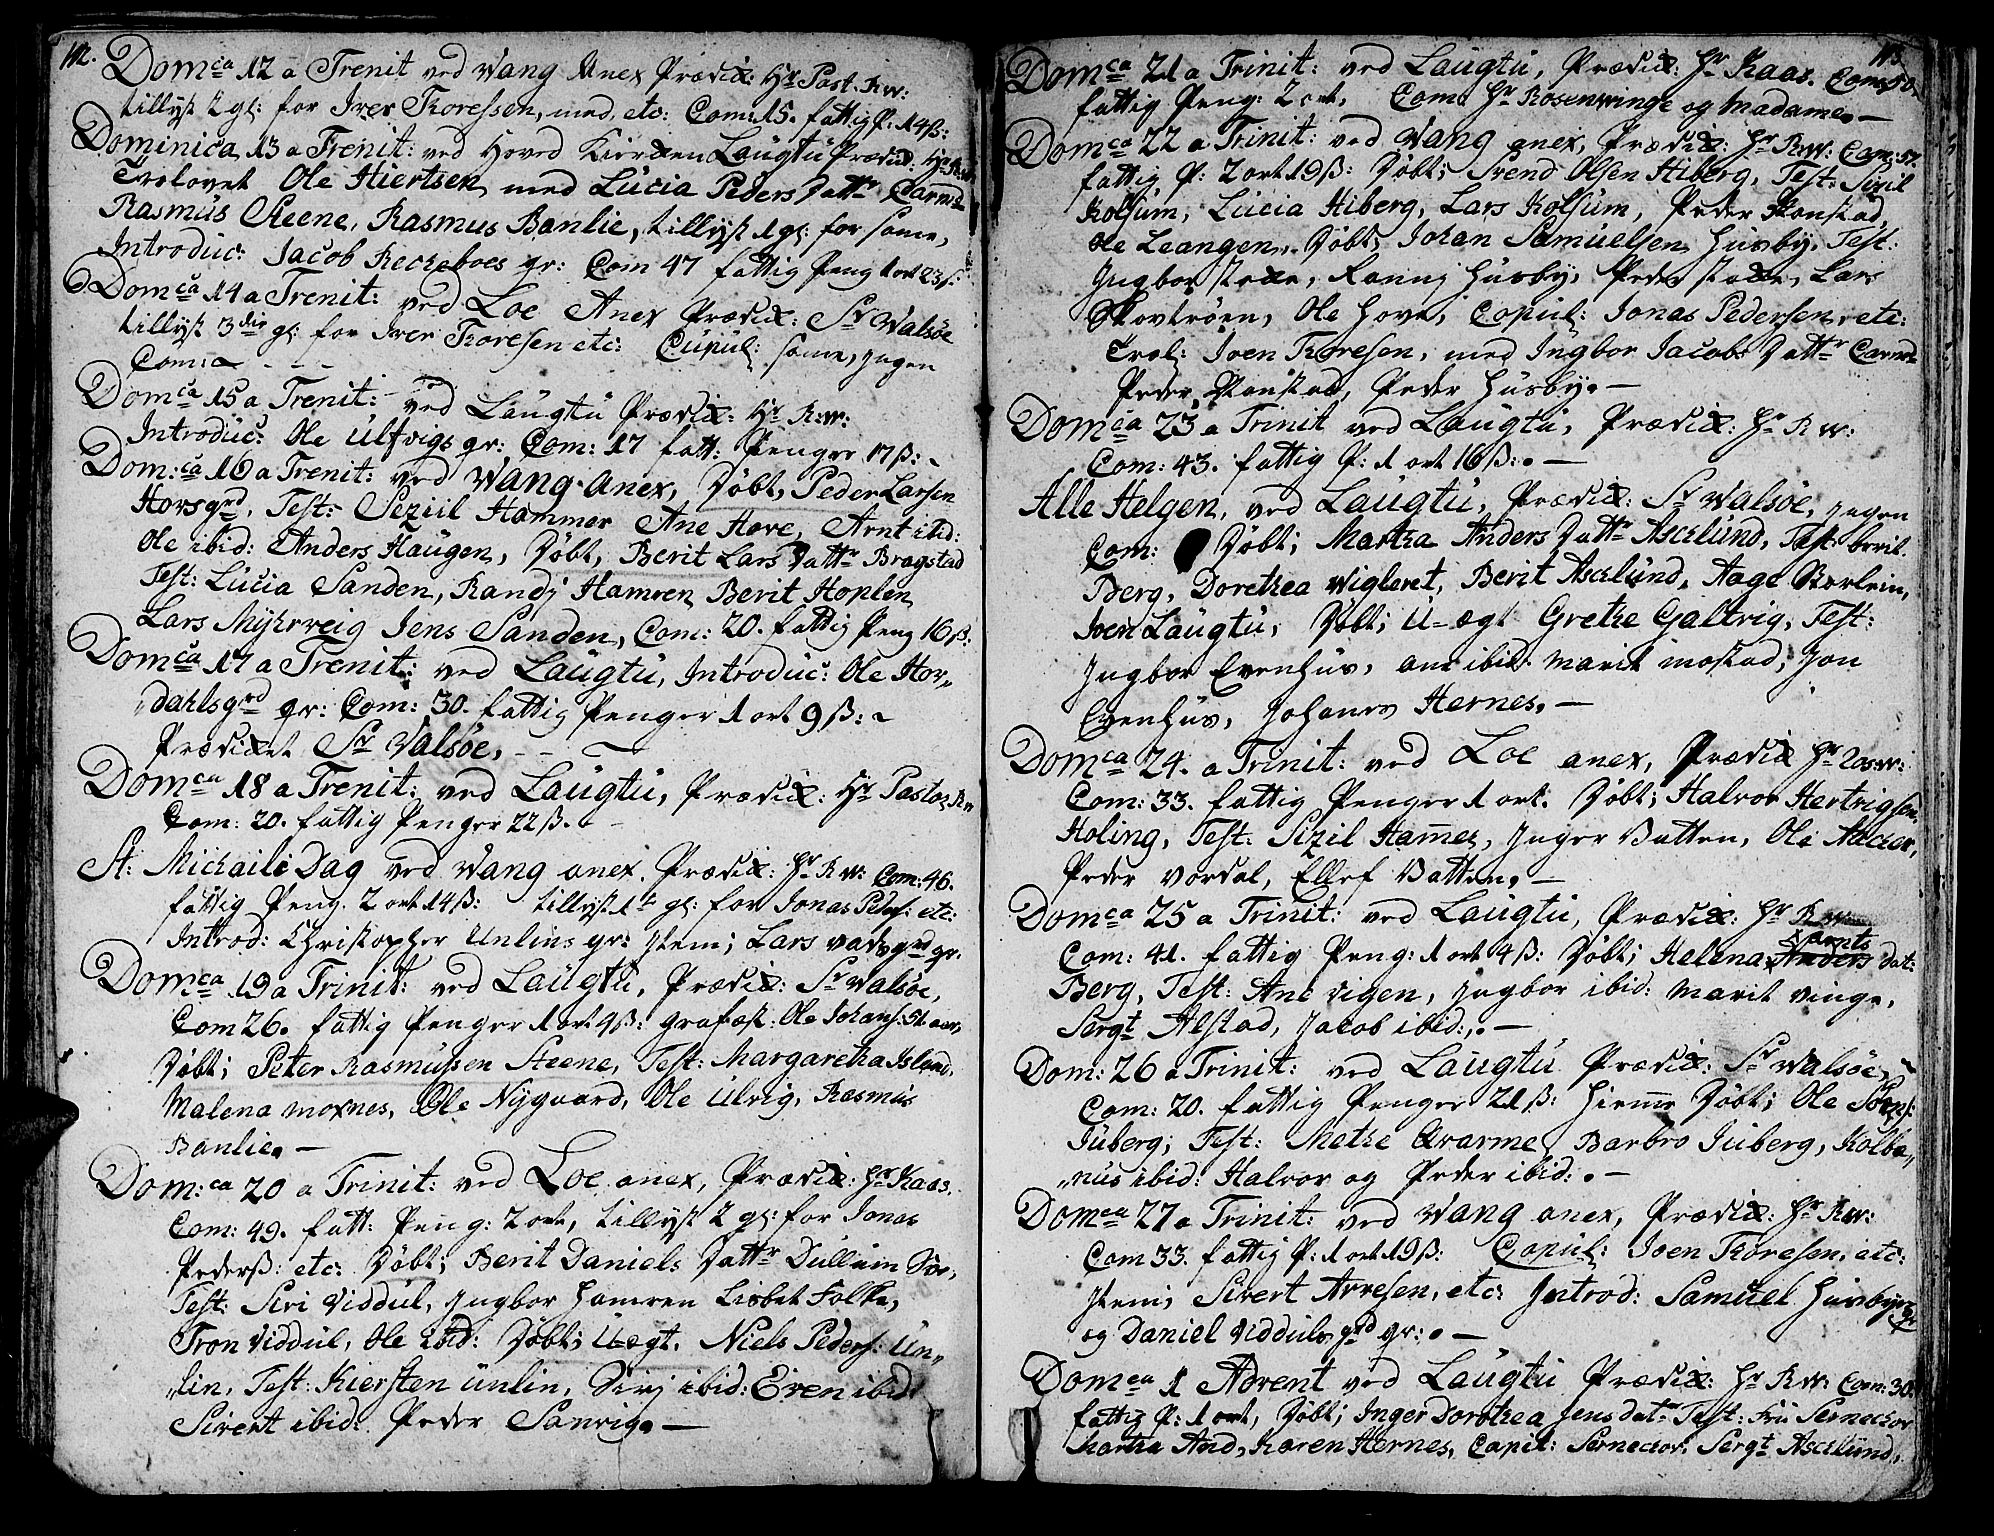 112.
Domca 12 a Trenit ved Wang Anex Prædix: Hr Past. RW:
tillyst 2 gl: for Iver Thoressen, med, etc: Com: 15. fattig P: 14ß:
Dominica 13 a Trenit: ved Hoved Kiercken Laugtu Prædix:
Trolovet Ole Hiertsen med Lucia Peders Dattr Cavred
Rasmus Steene, Rasmus Banlie, tillyst 1 gl: for same,
Introduc: Jacob Reckeboes gr: Com 47 fattig Peng 1 ort 23ß:
Domca 14 a Trenit: ved Loe Anex Prædix: Sr Walsøe
tillyst 3die gl: for Iver Thoresen etc: Cupul: same, Ingen
Com: a - - -
Domca 15 a Trenit: ved Laugtu Prædix: Hr R:W:
Introduc: Ole Ulfvigs gr: Com: 17 fatt: Penger 17ß:
Dom:ca 16 a Trenit: ved Wang Anex, Døbt, Peder Larsen
Horsgrd, Test: Seziil Hammer Ane Hove, Arnt ibid:
Ole ibid: Anders Haugen, Døbt, Berit Lars Dattr Bragstad
Test: Lucia Sanden, Randj Hamren Berit Hoplen
Lars Myhrveig Jens Sanden, Com: 20. fattig Peng 16ß:
Domca 17 a Trenit: ved Laugtu, Introduc: Ole Hor„
„dahlsgrd gr: Com: 30. fattig Penger 1 ort 9ß:
Prædixet Sr Walsøe,
Domca 18 a Trenit: ved Laugtu, Prædix: Hr Pastor RW
Com: 20. fattig Penger 22ß.
St: Michaili Dag ved Wang anex. Prædix: Hr RW: Com: 46.
fattig Peng. 2 ort 14ß: tillyst 1te gl: for Jonas Peders: etc:
Introd: Christopher Unlins gr: Item; Lars vadsgrd gr.
Domca 19 a Trinit: ved Laugtu, Prædix: Sr Walsøe,
Com 26. fattig Penger 1 ort 4ß: grafæst: Ole Johans: 51 aar,
Døbt; Peter Rasmussen Steene, Test: Margaretha Islend,
Malena moxnes, Ole Nygaard, Ole Ulvig, Rasmus
Banlie. —
Dom:ca 20 a Trinit: ved Loe anex, Prædix: Hr Kaas.
Com: 49. fatt: Peng: 2 ort, tillyst 2 gl: for Jonas
Pederß: etc: Døbt; Berit Daniels Dattr Dullum
Test: Siri Viddul, Ingbor Hamren Lisbet Folke,
Tron Viddul, Ole ibid: Døbt; Uægt. Niels Peders: Un„
„lin, Test: Kiersten unlin, Sirj ibid: Even ibid:
Sivert ibid: Peder Sanvig. —
113
Domca 21 a Trinit: ved Laugtu, Prædix: Hr Kaas. Com: 50.
fattig Peng: 2 ort, Com: Hr Rosenvinge og Madame. —
Domca 22 a Trinit: ved Wang anex, Prædix: Hr RW: Com: 57.
fattig P: 2 ort 19ß: Døbt; Svend Olsen Hiberg, Test: Sizil
Kolsum, Lucia Hiberg, Lars Kolsum, Peder Monstad,
Ole Leangen, Døbt; Johan Samuelsen Husby, Test:
Ingbor stoxe, Rannj Husby, Peder stoxe, Lars
Skovtrøen, Ole Hove, Copul: Jonas Pedersen, etc:
Trol: Joen Thoresen, med Ingbor Jacobs Dattr Caved
Peder Monstad, Peder Husby. —
Domca 23 a Trinit ved Laugtu, Prædix: Hr RW:
Com: 43. fattig P: 1 ort 16ß: . —
Alle Helgen, ved Laugtu, Prædix: Sr Walsøe, Ingen
Com: Døbt; Martha Anders Dattr Ascklund, Test: berit
Berg, Dorethea Wigleret, Berit Ascklund, Aage
Joen Laugtu, Døbt; U-ægt Grethe Galtvig, Test:
Ingbor Evenhus, ane ibid: Marit mostad, Jon
Evenhus, Johanes Hernes. —
Domca 24. a Trinit: ved Loe anex, Prædix Hr RosW:
Com: 33. fattig Penger 1 ort. Døbt; Halvor Hertvigsen
Holing, Test: Sizil Hamer, Inger Vatten, Ole Ascker,
Peder vordal, Ellef Vatten. —
Domca 25 a Trinit: ved Laugtu, Prædix: Hr RW
Com: 41. fattig Peng: 1 ort 4ß: Døbt; Helena Arnts dat:
Berg, Test: Ane vigen, Ingbor ibid: Marit vinge,
Sergt Alstad, Jacob ibid: . —
Dom: 26 a Trinit: ved Laugtu Prædix: Sr Walsøe,
Com: 20. fattig Penger 21ß: Hieme Døbt; Ole Sørens:
Juberg; Test: Methe Qvarme, Barbro Juberg, Kolbe„
„nus ibid: Halvor og Peder ibid: . —
Domca 27 a Trinit: ved Wang anex, Prædix: Hr RW:
Com 33. fattig P: 1 ort 19ß: Copul: Joen Thoresen, etc:
Item; Sivert Arvesen, etc: Introd: Samuel Husbyes gr
og Daniel Viddulsgrd gr: . —
Domca 1 Advent ved Laugtu Prædix: Hr RW: Com: 30.
fattig P: 1 ort, Døbt; Inger Dorothea Jens datr Test: Fru Sernechor
Martha And, Karen Hernes, Capit: Sernechor: Sergt Ascklund,